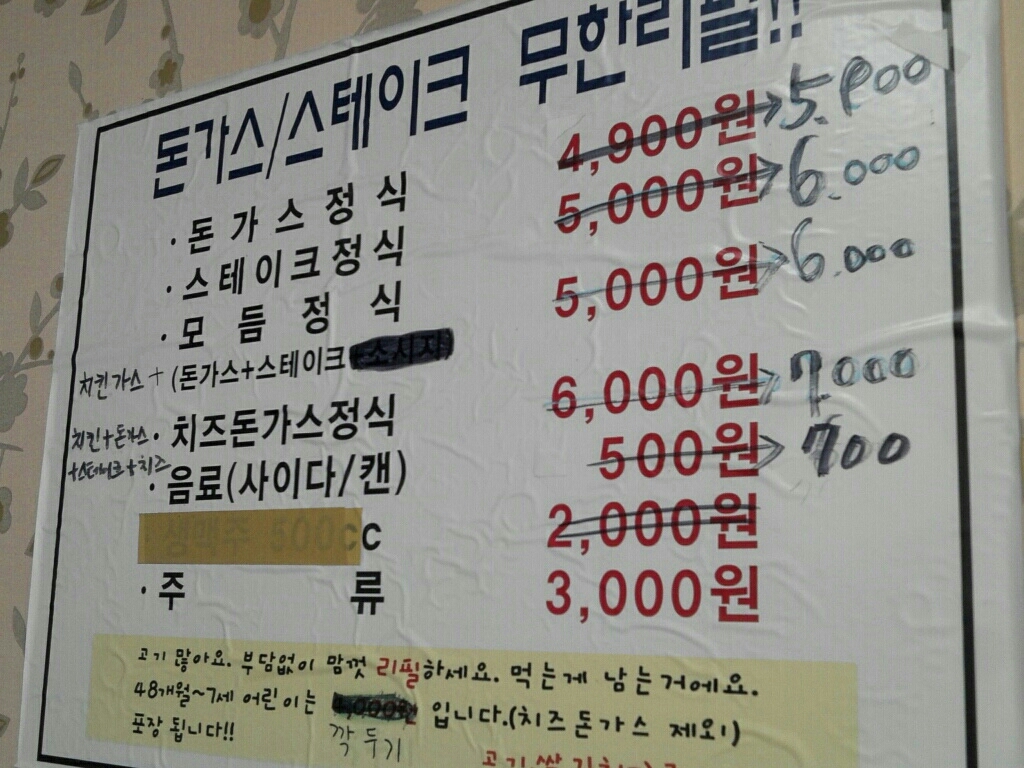 돈가스/스테이크 무한리필!!
· 돈가스정식 4,900원 → 5.900
· 스테이크정식 5,000원 → 6.000
· 모듬정식 5,000원 → 6.000
치킨가스 + (돈가스+스테이크+소시지)
· 치즈돈가스정식 6,000원 → 7000
치킨+돈가스
+스테이크+치즈
· 음료(사이다/캔) 500원 → 700
· 생맥주 500cc 2,000원
· 주류 3,000원
고기 많아요. 부담없이 맘껏 리필하세요. 먹는게 남는거에요.
48개월~7세 어린이는 입니다.(치즈돈가스 제외)
포장 됩니다!!
깍두기